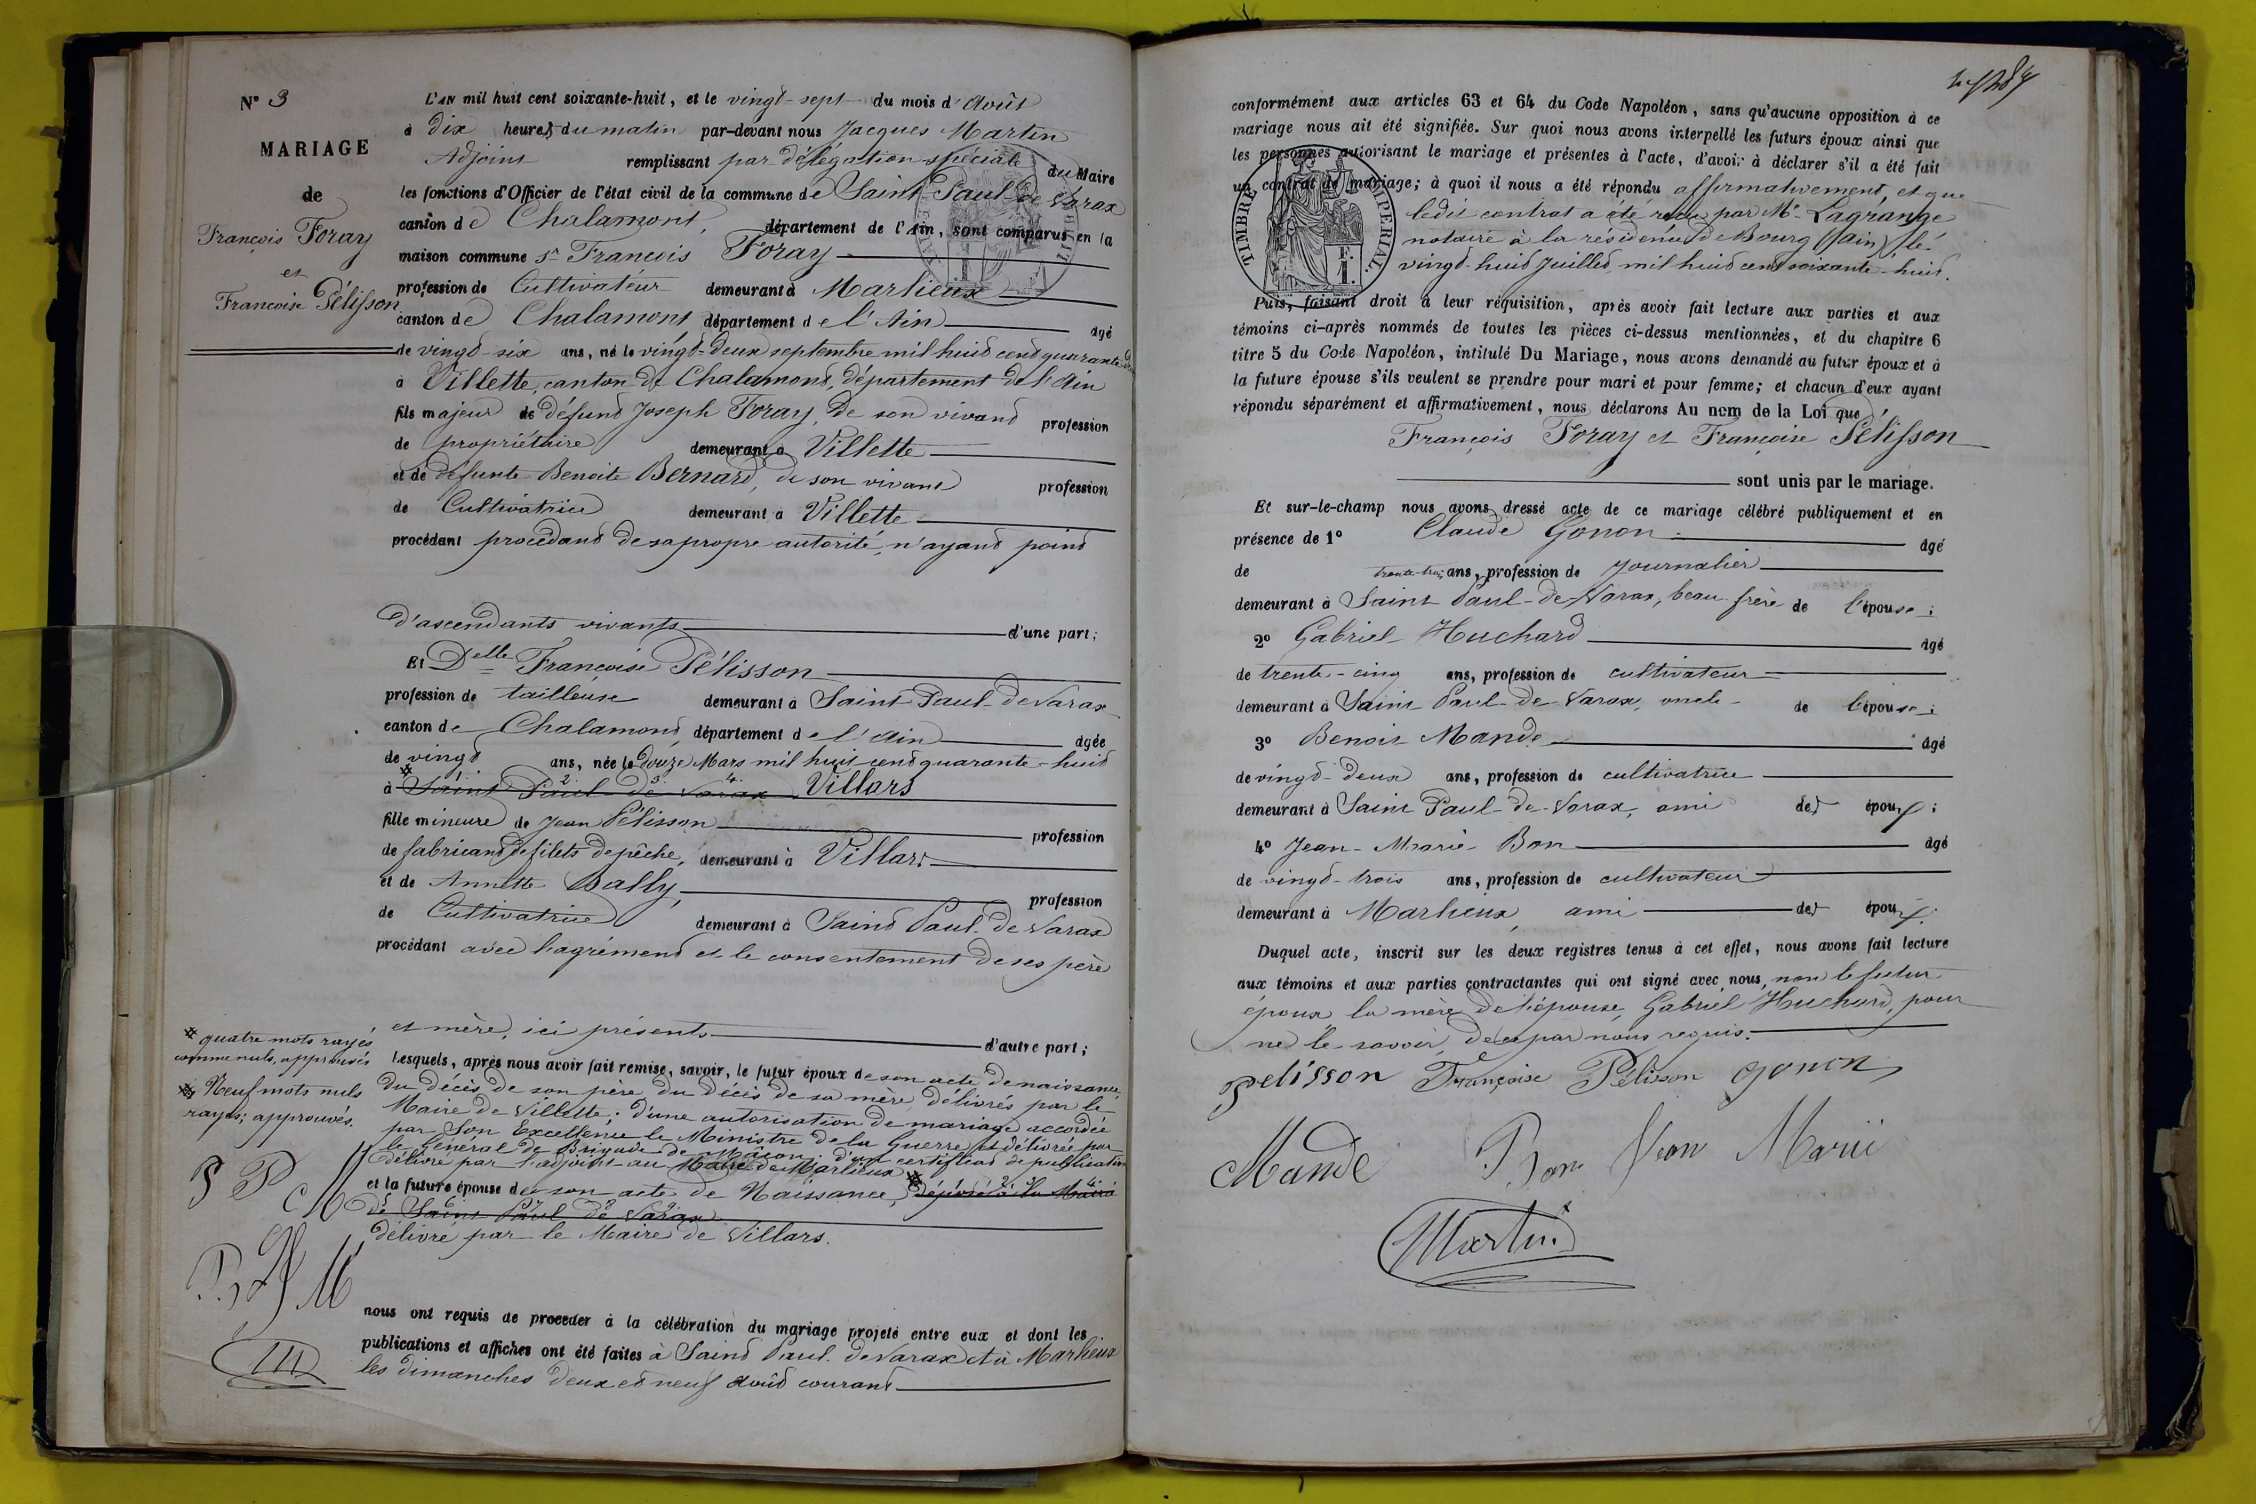 N° 3
MARIAGE
de
François Foray
et
Françoise Pélisson
L'AN mil huit cent soixante-huit, et le vingt-sept du mois d'Août
à dix heures du matin par-devant nous Jacques Martin
Adjoint remplissant par délégation spéciale du Maire
les fonctions d'Officier de l'état civil de la commune de Saint Paul de Varax
canton de Chalamont, département de l'Ain, sont comparus en la
maison commune Sr François Foray
profession de Cultivateur demeurant à Marlieux
canton de Chalamont département de l'Ain âgé
de vingt-six ans, né le vingt-deux septembre mil huit cent quarante-
à Villette, canton de Chalamont, département de l'Ain
fils majeur de défunt Joseph Foray, de son vivant profession
de propriétaire demeurant à Villette
et de défunte Benoite Bernard, de son vivant profession
de Cultivatrice demeurant à Villette
procédant procédant de sa propre autorité, n'ayant point
d'ascendants vivants d'une part;
Et Delle Françoise Pélisson
profession de tailleuse demeurant à Saint Paul-de Varax
canton de Chalamont, département de l'Ain âgée
de vingt ans, née le douze Mars mil huit cent quarante-huit
à Saint Paul de Varax Villars
fille mineure de Jean Pélisson profession
de fabricant de filets de pêche, demeurant à Villars
et de Annette Bally, profession
de Cultivatrice demeurant à Saint Paul de Varax
procédant avec l'agrément et le consentement de ses père
et mère, ici présents d'autre part;
quatre mots rayés
comme nuls, approuvés
Neuf mots nuls
rayés; approuvés.
P P C M
Lesquels, après nous avoir fait remise, savoir, le futur époux de son acte de naissance,
du décès de son père, du décès de sa mère délivrés par le
Maire de Villette; d'une autorisation de mariage accordée
par Son Excellence le Ministre de la Guerre et délivrée par
le Général de Brigade de Mâcon; d'un certificat de publication
délivré par l'adjoint au Maire de Marlieux
et la future épouse de son acte de Naissance, déposé à la Mairie
de Saint Paul de Varax
délivré par le Maire de Villars.
nous ont requis de procéder à la célébration du mariage projeté entre eux et dont les
publications et affiches ont été faites à Saint Paul de Varax et à Marlieux
les dimanches deux et neuf Août courant
conformément aux articles 63 et 64 du Code Napoléon, sans qu'aucune opposition à ce
mariage nous ait été signifiée. Sur quoi nous avons interpellé les futurs époux ainsi que
les personnes autorisant le mariage et présentes à l'acte, d'avoir à déclarer s'il a été fait
un contrat de mariage; à quoi il nous a été répondu affirmativement, et que
ledit contrat a été reçu par Me Lagrange
notaire à la résidence de Bourg (Ain) le
vingt-huit Juillet mil huit cent soixante-huit.
TIMBRE IMPERIAL
Puis, faisant droit à leur réquisition, après avoir fait lecture aux parties et aux
témoins ci-après nommés de toutes les pièces ci-dessus mentionnées, et du chapitre 6
titre 5 du Code Napoléon, intitulé Du Mariage, nous avons demandé au futur époux et à
la future épouse s'ils veulent se prendre pour mari et pour femme; et chacun d'eux ayant
répondu séparément et affirmativement, nous déclarons Au nom de la Loi que
François Foray et Françoise Pélisson
sont unis par le mariage.
Et sur-le-champ nous avons dressé acte de ce mariage célébré publiquement et en
présence de 1° Claude Gonon âgé
de trente-trois ans, profession de journalier
demeurant à Saint Paul-de-Varax, beau-frère de l'épouse;
2° Gabriel Huchard âgé
de trente-cinq ans, profession de cultivateur
demeurant à Saint Paul-de-Varax, oncle de l'épouse;
3° Benoit Mande âgé
de vingt-deux ans, profession de cultivatrice
demeurant à Saint Paul-de-Varax, ami des époux;
4° Jean-Marie Bon âgé
de vingt-trois ans, profession de cultivateur
demeurant à Marlieux, ami des époux.
Duquel acte, inscrit sur les deux registres tenus à cet effet, nous avons fait lecture
aux témoins et aux parties contractantes qui ont signé avec nous, non le futur
époux la mère de l'épouse, Gabriel Huchard, pour
ne le savoir, de ce par nous requis.
Pelisson Françoise Pélisson gonon
Mande Bon Jean Marie
Martin